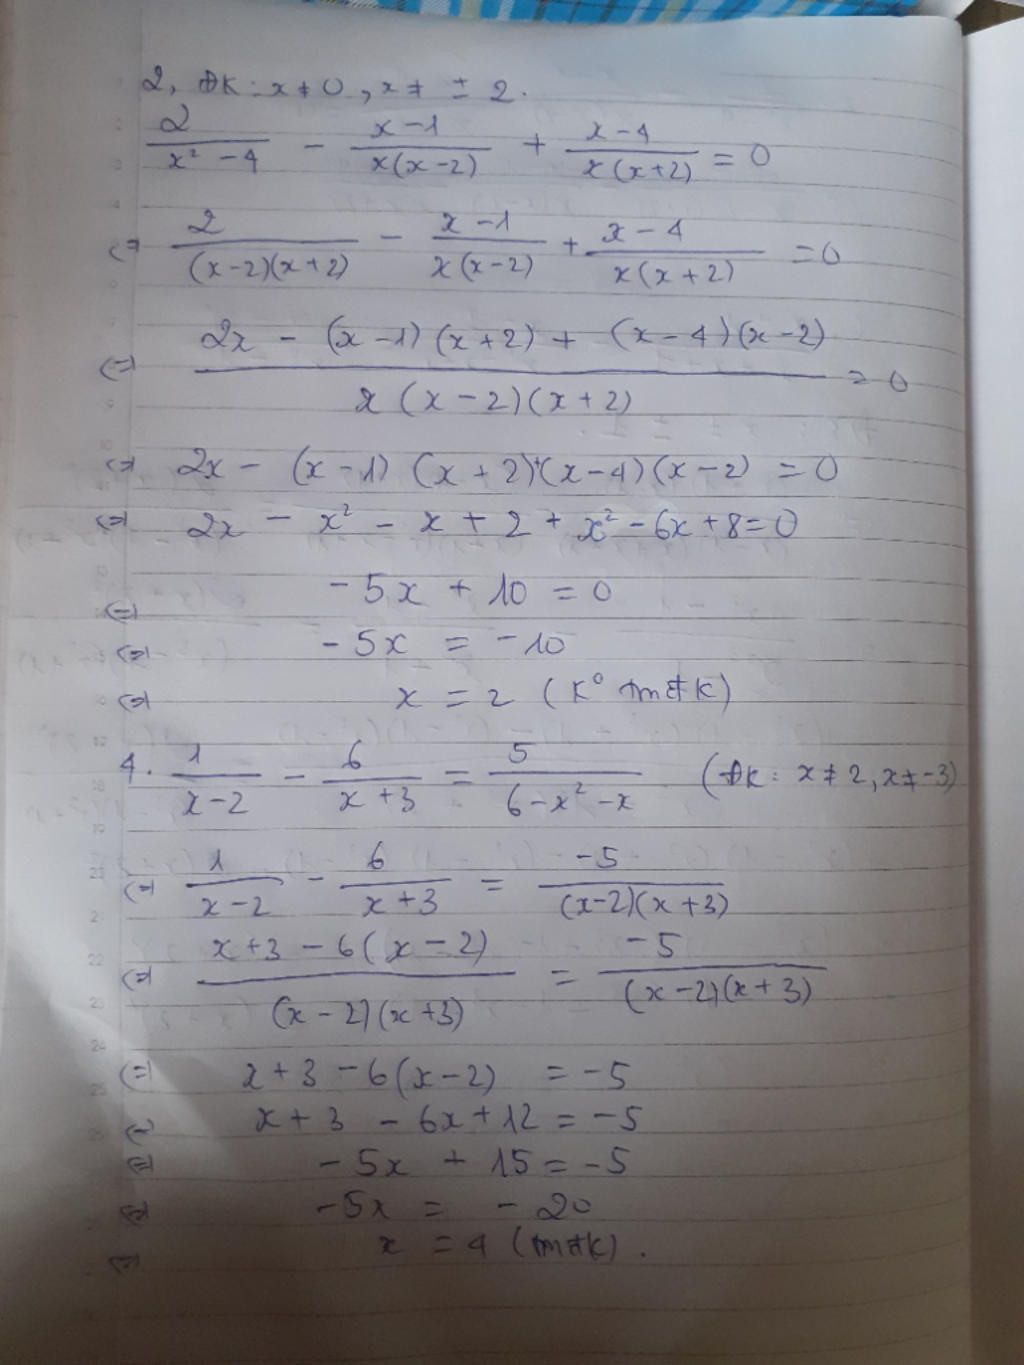 2, ĐK: x ≠ 0, x ≠ ± 2.
2/(x² - 4) - (x - 1)/(x(x - 2)) + (x - 4)/(x(x + 2)) = 0
<=> 2/((x - 2)(x + 2)) - (x - 1)/(x(x - 2)) + (x - 4)/(x(x + 2)) = 0
<=> (2x - (x - 1)(x + 2) + (x - 4)(x - 2))/(x(x - 2)(x + 2)) = 0
<=> 2x - (x - 1)(x + 2) + (x - 4)(x - 2) = 0
<=> 2x - x² - x + 2 + x² - 6x + 8 = 0
<=> - 5x + 10 = 0
<=> - 5x = - 10
<=> x = 2 (K° tmđk)
4. 1/(x - 2) - 6/(x + 3) = 5/(6 - x² - x) (ĐK: x ≠ 2, x ≠ -3)
<=> 1/(x - 2) - 6/(x + 3) = -5/((x - 2)(x + 3))
<=> (x + 3 - 6(x - 2))/((x - 2)(x + 3)) = -5/((x - 2)(x + 3))
<=> x + 3 - 6(x - 2) = -5
<=> x + 3 - 6x + 12 = -5
<=> - 5x + 15 = -5
<=> - 5x = - 20
<=> x = 4 (tmđk).